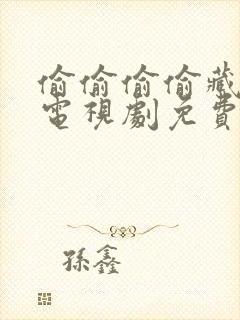 偷偷偷偷藏
電視劇免費
孫鑫